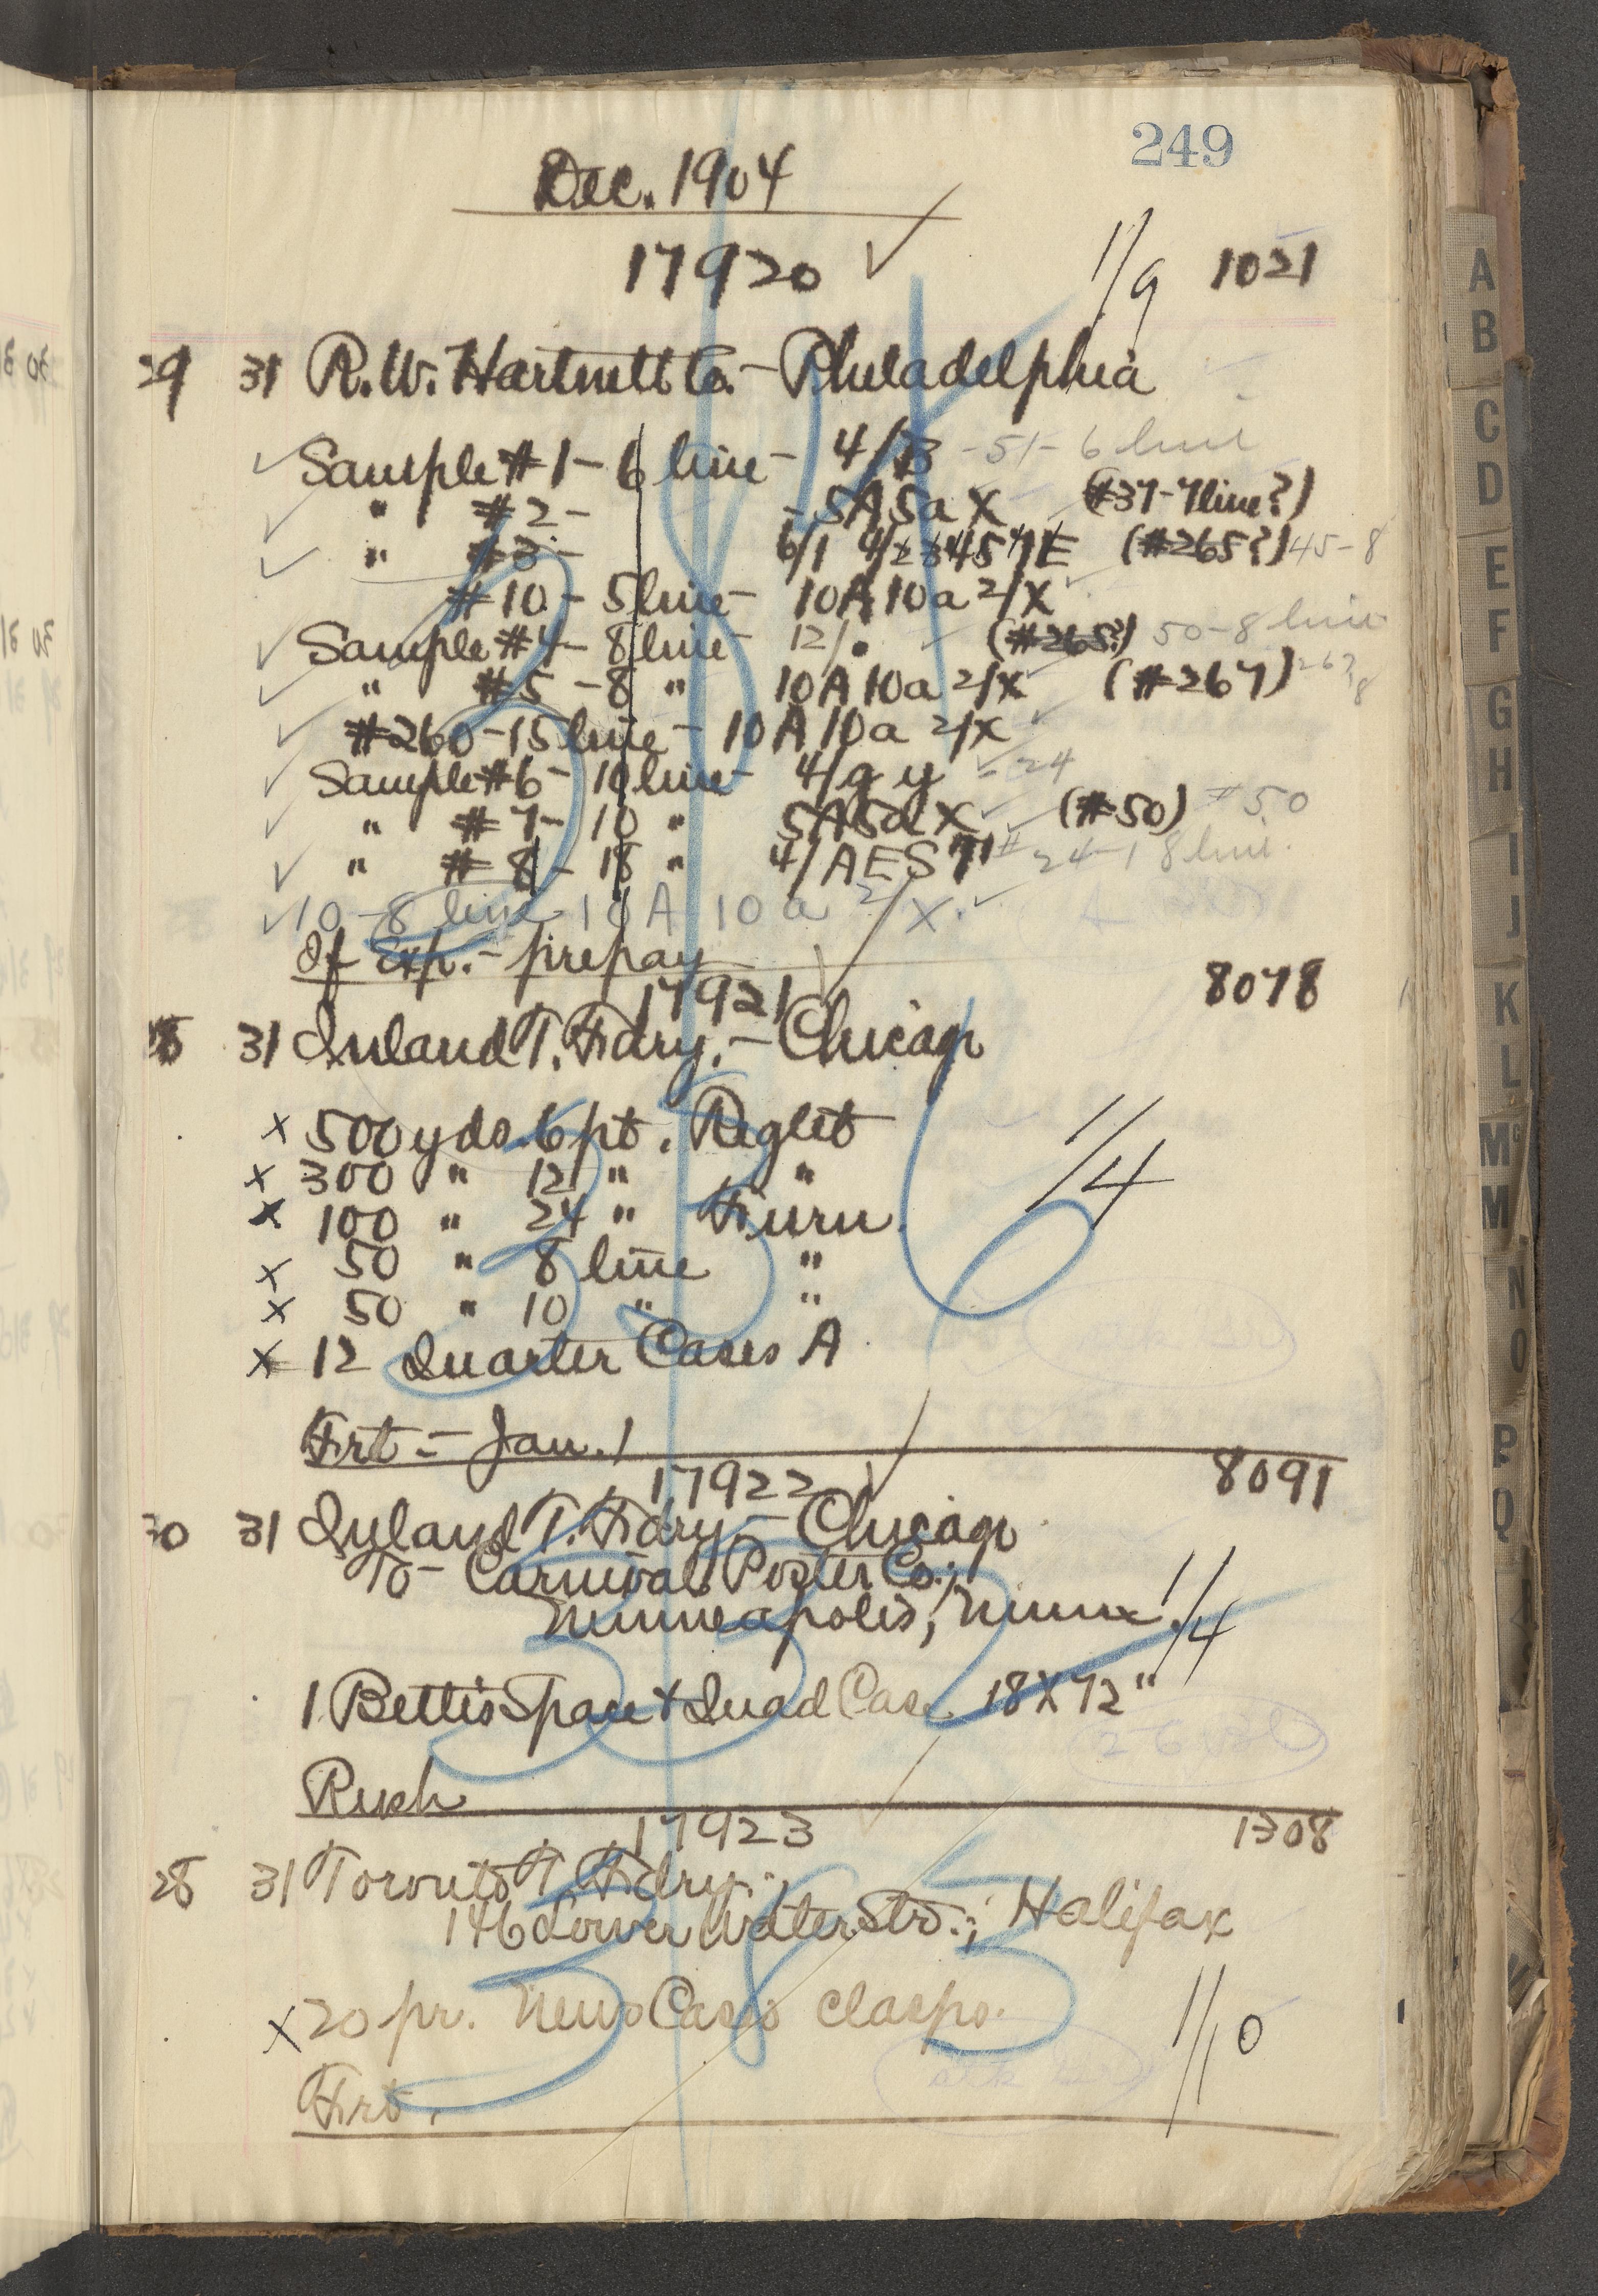 249
Dec. 1904
17920 ✓ 1/9 1021
29 31 R.W. Hartnett Co. - Philadelphia
✓ Sample #1 - 6 line - 4/B - 51 - 6 line
✓ " #2 - - 5A5a X (#37-7line?)
✓ " #3 - 6/1 (#265?) 45-8
#10 - 5 line - 10A10a 2/X ✓
✓ Sample #4 - 8 line - 12/. (#265?) 50-8 line
✓ " #5 - 8 " 10A10a 2/X (#267)
✓ #260 - 15 line - 10A10a 2/X ✓
✓ Sample #6 - 10 line - 4/g y - 24
✓ " #7 - 10 " 5A5a X ✓ (#50) #50
✓ " #8 - 18 " 4/AES # 24-18 line.
✓ 10 - 8 line 10A 10a 2/X. ✓
If Exp. - prepay
17921 8078
31 Inland T. Fdry. - Chicago
x 500 yds. 6 pt. Reglet
x 300 " 12 " "
x 100 " 24 " Furn. 1/4
x 50 " 8 line "
x 50 " 10 " "
x 12 Quarter Cases A
Frt - Jan. 1
17922 ✓ 8091
30 31 Inland T. Fdry - Chicago
To - Carnival Poster Co.,
Minneapolis, Minn. 1/4
1 Bettis Space & Quad Case 18X72"
Rush
17923 1308
28 31 Toronto T. Fdry.,
146 Lower Water Str.; Halifax
x 20 pr. News Cases clasps. 1/10
Frt.
A
B
C
D
E
F
G
H
I
J
K
L
M
M
N
O
P
Q